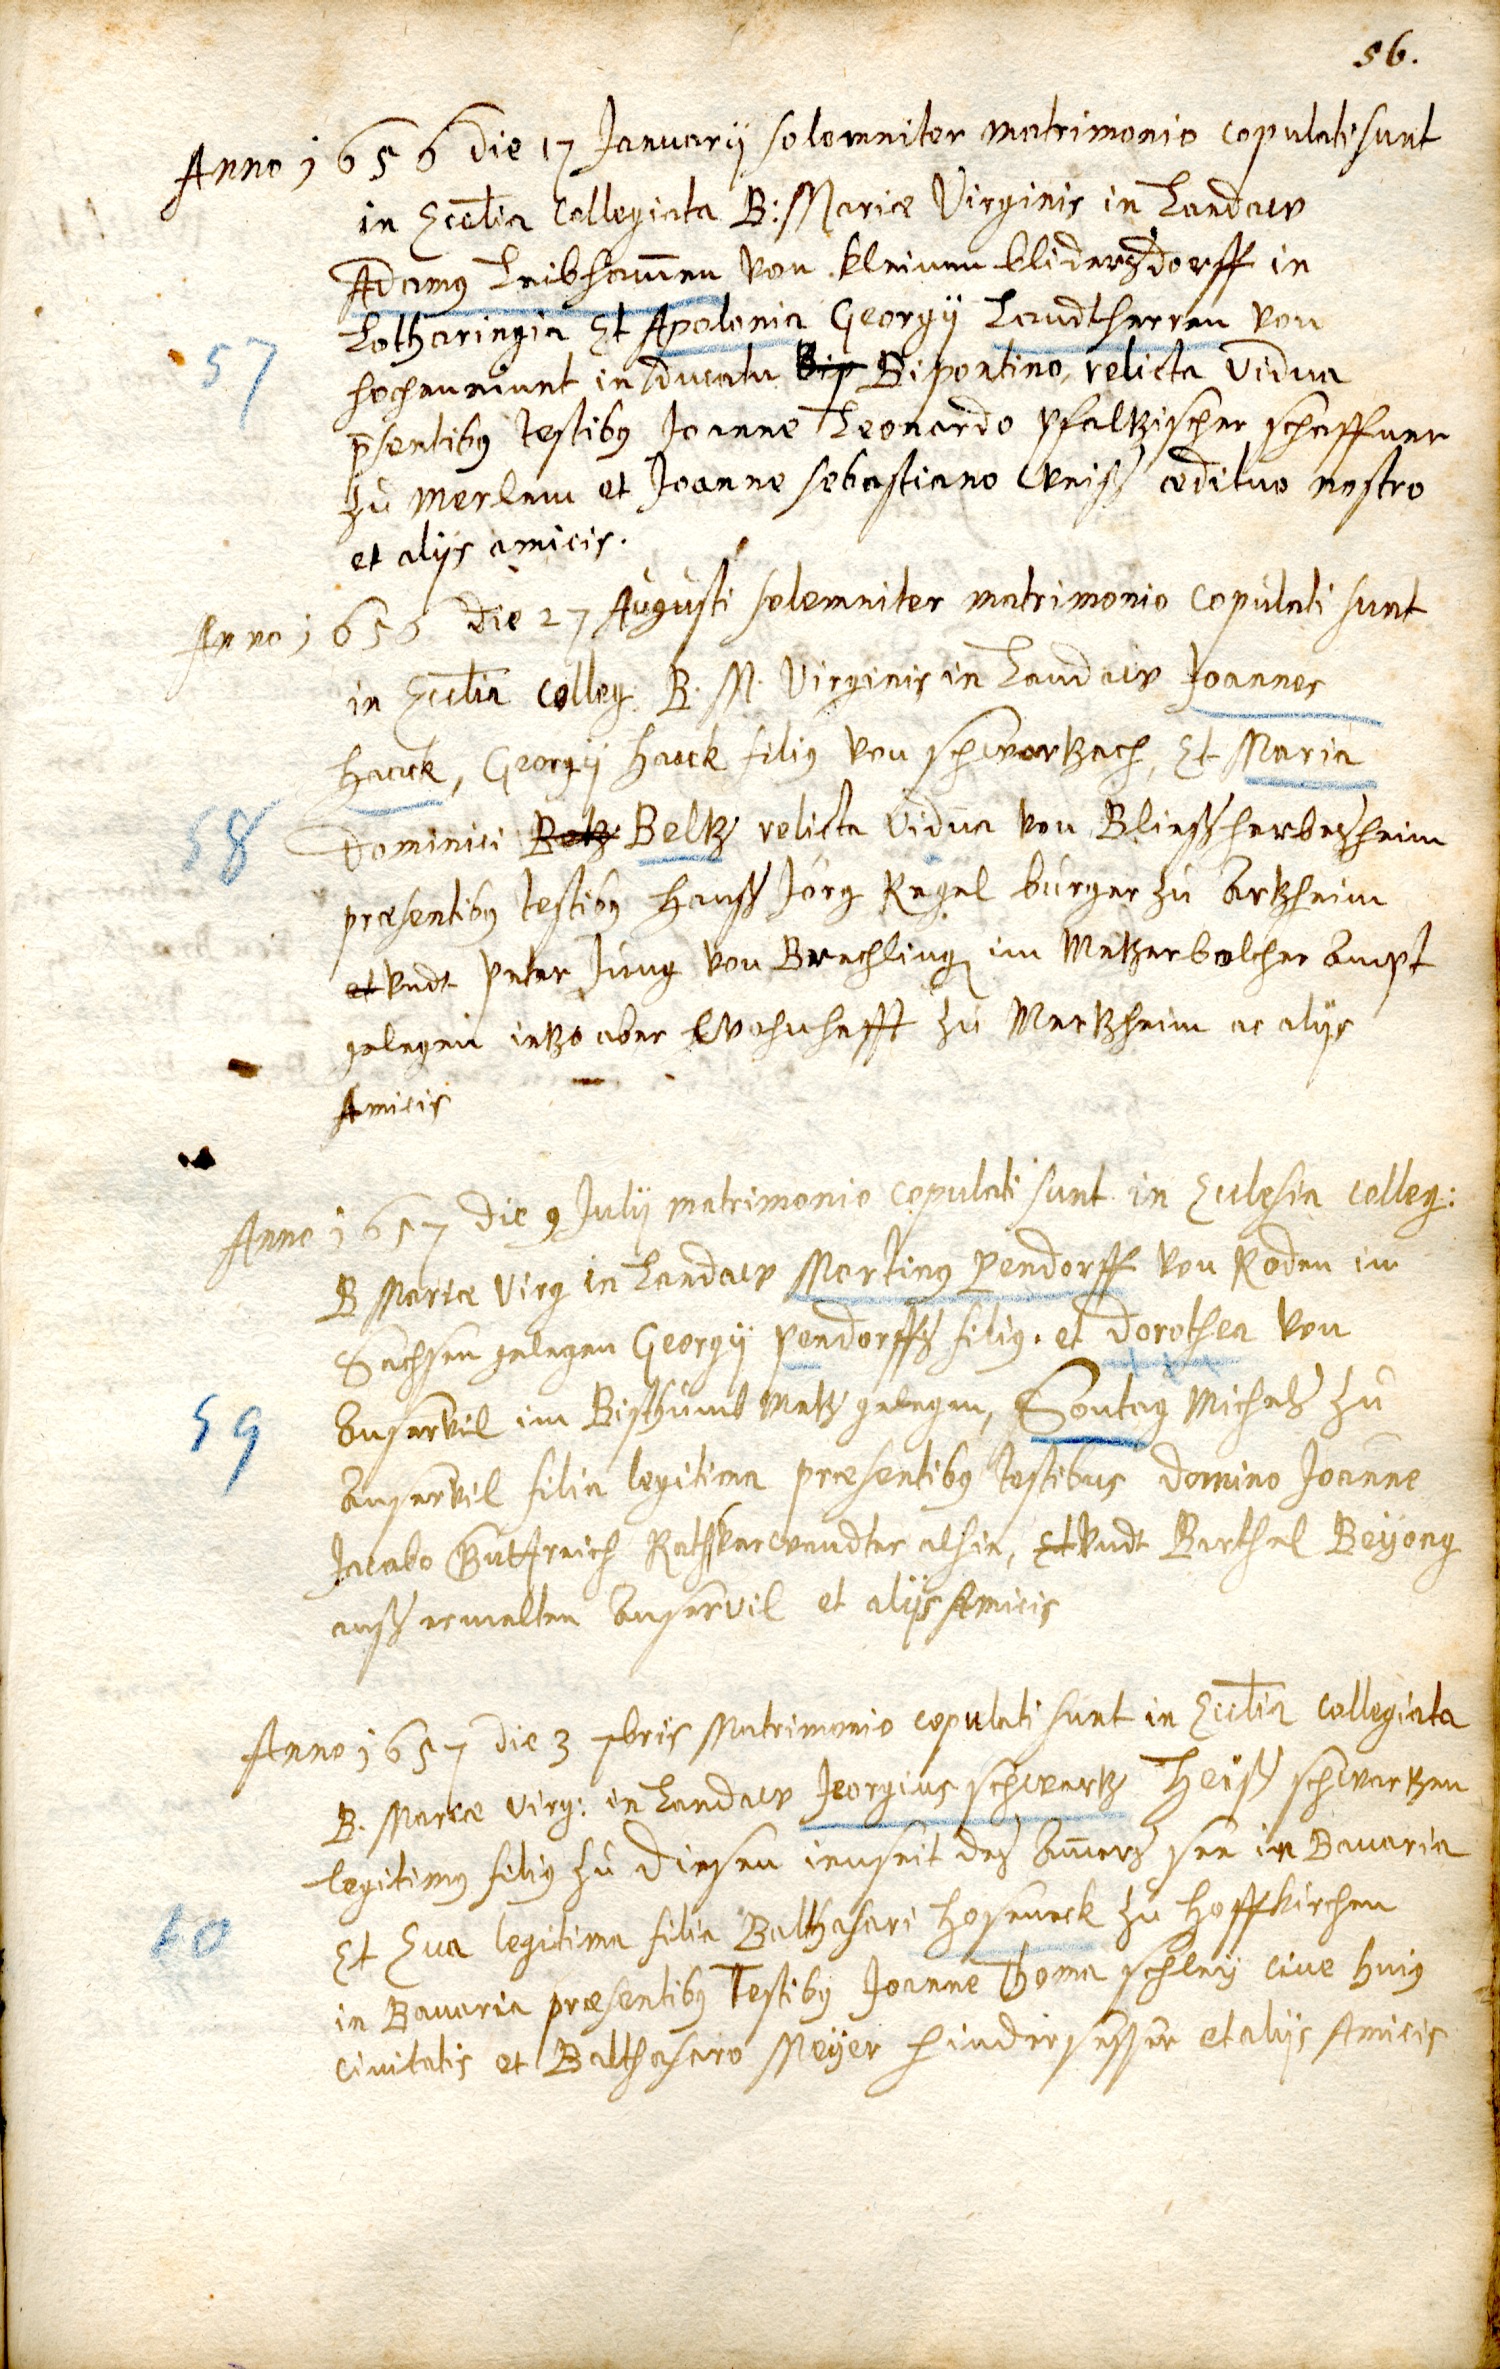 56.
Anno 1656 die 17 Januarij solemniter matrimonio copulati sunt
in Eccl̄ia Collegiata B: Mariæ Virginis in Landaw
Adamus Leibham̄en von kleinen blidersdorff in
Lotharingia Et Apolonia Georgij Landtherren von
57
in ducatu Bip Bipontino, relicta Vidua
p̄sentibus testibus Joanne Leonardo Pfaltzischer schaffner
zu Merlem et Joanne Sebastiano Weiß ædituo nostro
et alijs amicis.
Anno 1656 die 27 Augusti solemniter matrimonio copulati sunt
in Eccl̄ia Colleg. B. M. Virginis in Landaw Joannes
Hauck, Georgij Hauck filius von schwartzach, Et Maria
58
Dominici Betz Beltz relicta vidua von Bließherbeßheim
præsentibus testibus Hanß Jörg Regel burger zu Artzheim
et vndt Peter Jung von Brechling im Metzerbolcher Ampt
gelegen ietzo aber Wohnhafft zu Mertzheim ac alijs
Amicis
Anno 1657 die 9 Julij matrimonio copulati sunt in Ecclesia colleg:
B Mariæ Virg in Landaw Martinus Pendorff von Roden im
Sachsen gelegen Georgij Pendorffs filius. et Dorothea von
59
Anservil im Bisthumb Metz gelegen, Sontag Michels zu
Anservil filia legitima præsentibus testibus Domino Joanne
Jacabo Guttreich Rathsverwandter alhie, Et vndt Barthel Beÿong
auß ermelten Anservil et alijs Amicis
Anno 1657 die 3 7bris Matrimonio copulati sunt in Eccl̄ia Collegiata
B. Mariæ Virg: in Landaw Jeorgius schwartz Theiß schwartzen
legitimus filius zu Diesen ienseit des Am̄ers see in Bauaria
60
Et Eua legitima filia Balthasari Hoseneck zu Hoffkirchen
in Bauaria præsentibus Testibus Joanne Thoma schleij ciue huius
ciuitatis et Balthasaro Meÿer hindersesser et alijs Amicis